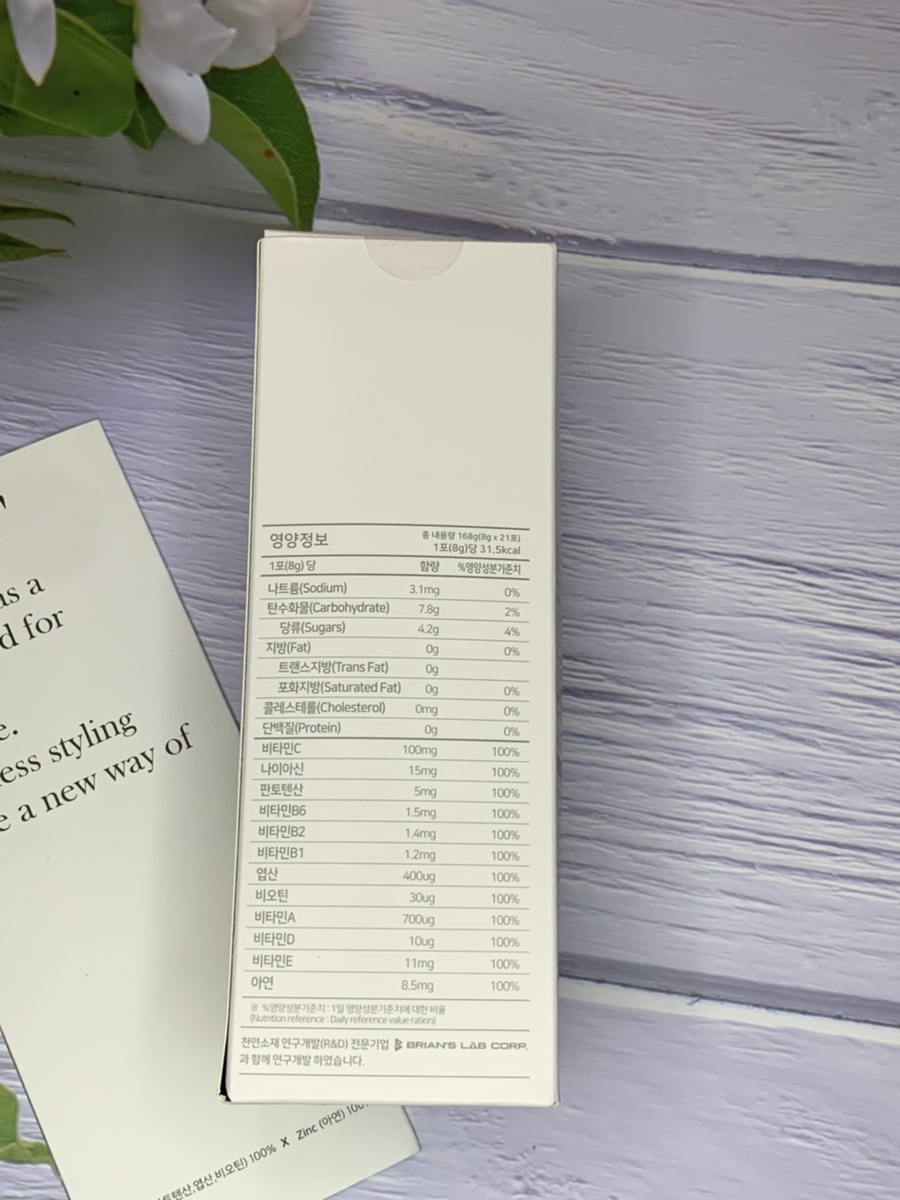 영양정보
총 내용량 168g(8g x 21포)
1포(8g)당 31.5kcal
1포(8g) 당 함량 %영양성분기준치
나트륨(Sodium) 3.1mg 0%
탄수화물(Carbohydrate) 7.8g 2%
당류(Sugars) 4.2g 4%
지방(Fat) 0g 0%
트랜스지방(Trans Fat) 0g
포화지방(Saturated Fat) 0g 0%
콜레스테롤(Cholesterol) 0mg 0%
단백질(Protein) 0g 0%
비타민C 100mg 100%
나이아신 15mg 100%
판토텐산 5mg 100%
비타민B6 1.5mg 100%
비타민B2 1.4mg 100%
비타민B1 1.2mg 100%
엽산 400ug 100%
비오틴 30ug 100%
비타민A 700ug 100%
비타민D 10ug 100%
비타민E 11mg 100%
아연 8.5mg 100%
※ %영양성분기준치 : 1일 영양성분기준치에 대한 비율
(Nutrition reference : Daily reference value ration)
천연소재 연구개발(R&D) 전문기업 BRIAN'S LAB CORP.
과 함께 연구개발 하였습니다.
as a
d for
e.
ess styling
e a new way of
토텐산,엽산,비오틴) 100% X Zinc (아연) 100